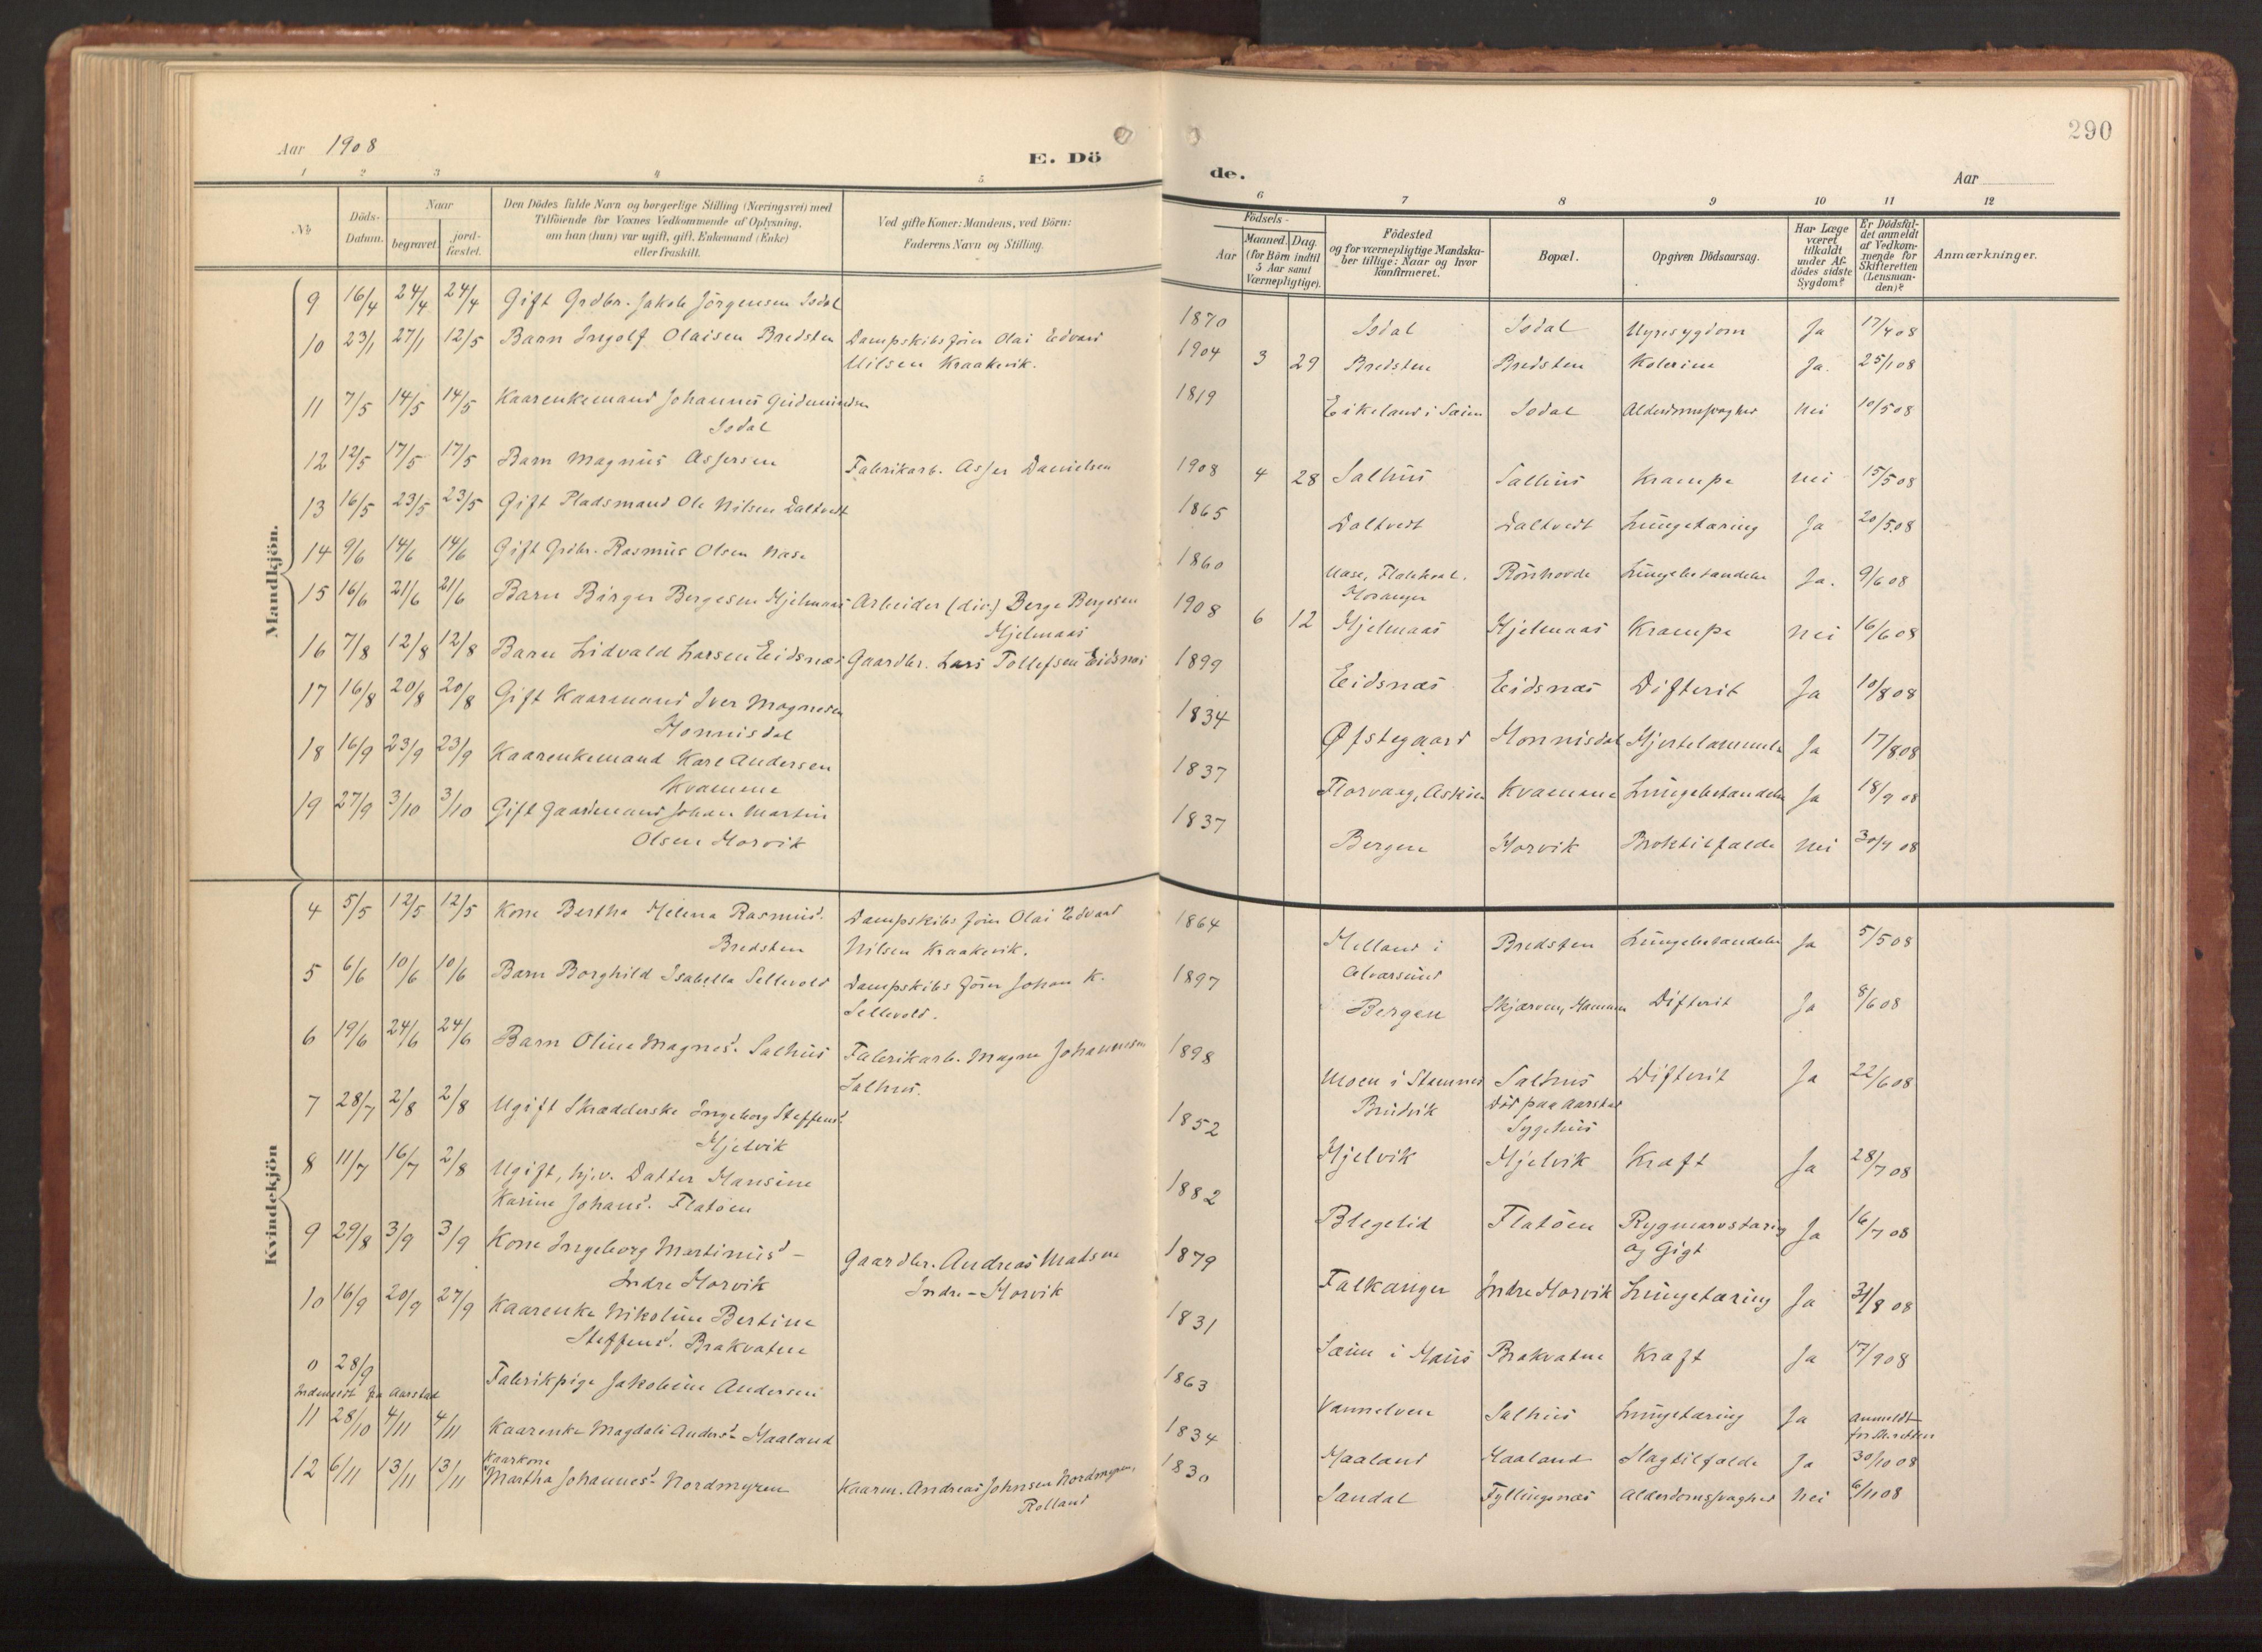 290
Aar 1908
E. Dö
de.
Aar
1 2 3 4 5
6 7 8 9 10 11 12
№
Döds-Datum.
Naar
begravet.
jord-fæstet.
Den Dödes fulde Navn og borgerlige Stilling (Næringsvei) med
Tilföiende for Voxnes Vedkommende af Oplysning,
om han (hun) var ugift, gift, Enkemand (Enke)
eller fraskilt.
Ved gifte Koner: Mandens, ved Börn:
Faderens Navn og Stilling.
Födsels-
Aar
Maaned. Dag.
(for Börn indtil
5 Aar samt
Værnepligtige).
Födested
og for værnepligtige Mandska-
ber tillige: Naar og hvor
konfirmeret.
Bopæl.
Opgiven Dödsaarsag.
Har Læge
været
tilkaldt
under Af-
dödes sidste
Sygdom?
Er Dödsfal-
det anmeldt
af Vedkom-
mende for
Skifteretten
(Lensman-
den)?
Anmærkninger.
Mandkjön.
9 16/4 24/4 24/4 Gift Grdbr. Jakob Jörgensen Isdal 1870 Isdal Isdal Nyresygdom Ja 17/4 08
10 23/1 27/1 12/5 Barn Ingolf Olaisen Bredsten Dampskibsförer Olai Edvard 1904 3 29 Bredsten Bredsten Kolerine Ja. 25/1 08
Nilsen Kraakevik.
11 7/5 14/5 14/5 Kaarenkemand Johannes 1819 Eikeland i Sæim Isdal Alderdomssvaghed Nei 10/5 08
Isdal
12 12/5 17/5 17/5 Barn Magnus Asfersen Fabrikarb. Asfer Danielsen 1908 4 28 Salhus Salhus Krampe Nei 15/5 08
13 16/5 23/5 23/5 Gift Pladsmand Ole Nilsen Daltvedt 1865 Daltvedt Daltvedt Lungetæring Ja 20/5 08
14 9/6 14/6 14/6 Gift Grdbr. Rasmus Olsen Nase 1860 Nase, Rönhovde Lungebetændelse Ja. 9/6 08
Hosanger
15 16/6 21/6 21/6 Barn Birger Bergesen Hjelmaas Arbeider (div.) Berge Bergesen 1908 6 12 Hjelmaas Hjelmaas Krampe Nei 16/6 08
Hjelmaas
16 7/8 12/8 12/8 Barn Lidvald Larsen Eidsnæs Gaardbr. Lars Tollefsen Eidsnæs 1899 Eidsnæs Eidsnæs Difterit Ja 10/8 08
17 16/8 20/8 20/8 Gift Kaarmand Iver Magnesen 1834 Øfstegaard Monnisdal Hjertelammelse Ja 17/8 08
Honnisdal
18 16/9 23/9 23/9 Kaarenkemand Karl Andersen 1837 Florvaag, Asköen Kvamme Lungebetændelse Ja 18/9 08
Kvamme
19 27/9 3/10 3/10 Gift Gaardmand Johan Martin 1837 Bergen Horvik Broktilfælde Nei 30/9 08
Olsen Horvik
Kvindekjön
4 5/5 12/5 12/5 Kone Bertha Helena Rasmusd. Dampskibsförer Olai Edvard 1864 Helland i Bredsten Lungebetændelse Ja 5/5 08
Bredsten Nilsen Kraakevik. Alvarsund
5 6/6 10/6 10/6 Barn Borghild Isabella Sellevold Dampskibsförer Johan K. 1897 Bergen Skjærven, Hammer Difterit Ja 8/6 08
Sellevold.
6 19/6 24/6 24/6 Barn Oline Magnesd. Salhus Fabrikarb. Magne Johannesen 1898 Moen i Stamnes Salhus Difterit Ja 22/6 08
Salhus. Bruvik Död paa Aarstad
Sygehus
7 28/7 2/8 2/8 Ugift Skrædderske Ingeborg Steffensd. 1852 Hjelvik Hjelvik Kræft Ja 28/7 08
Hjelvik
8 11/7 16/7 2/8 Ugift, hjv. Datter Hansine 1882 Blegelid Flatöen Rygmarvstæring Ja 16/7 08
Karine Johansd. Flatöen og Gigt
9 29/8 3/9 3/9 Kone Ingeborg Martinusd- Gaardbr. Andreas Madsen 1879 Falkanger Indre Horvik Lungetæring Ja 31/8 08
Indre Horvik Indre-Horvik
10 16/9 20/9 27/9 Kaarenke Nikoline Bertine 1831 Sæim i Haus Brakvatne Kræft Ja 17/9 08
Steffensd. Brakvatne
0 28/9 Fabrikpige Jakobine Andersen 1863 Vannelven Salhus Lungetæring Ja Anmeldt
Indmeldt fra Aarstad for Sk.retten
11 28/10 4/11 4/11 Kaarenke Magdali Andersd. Haaland 1834 Haaland Haaland Slagtilfælde Ja 30/10 08
12 6/11 13/11 13/11 Kaarkone
Martha Johannesd. Nordmyren Kaarm. Andreas Johnsen Nordmyren, 1830 Sandal Fyllingsnæs Alderdomssvaghed Nei 6/11 08
Rolland